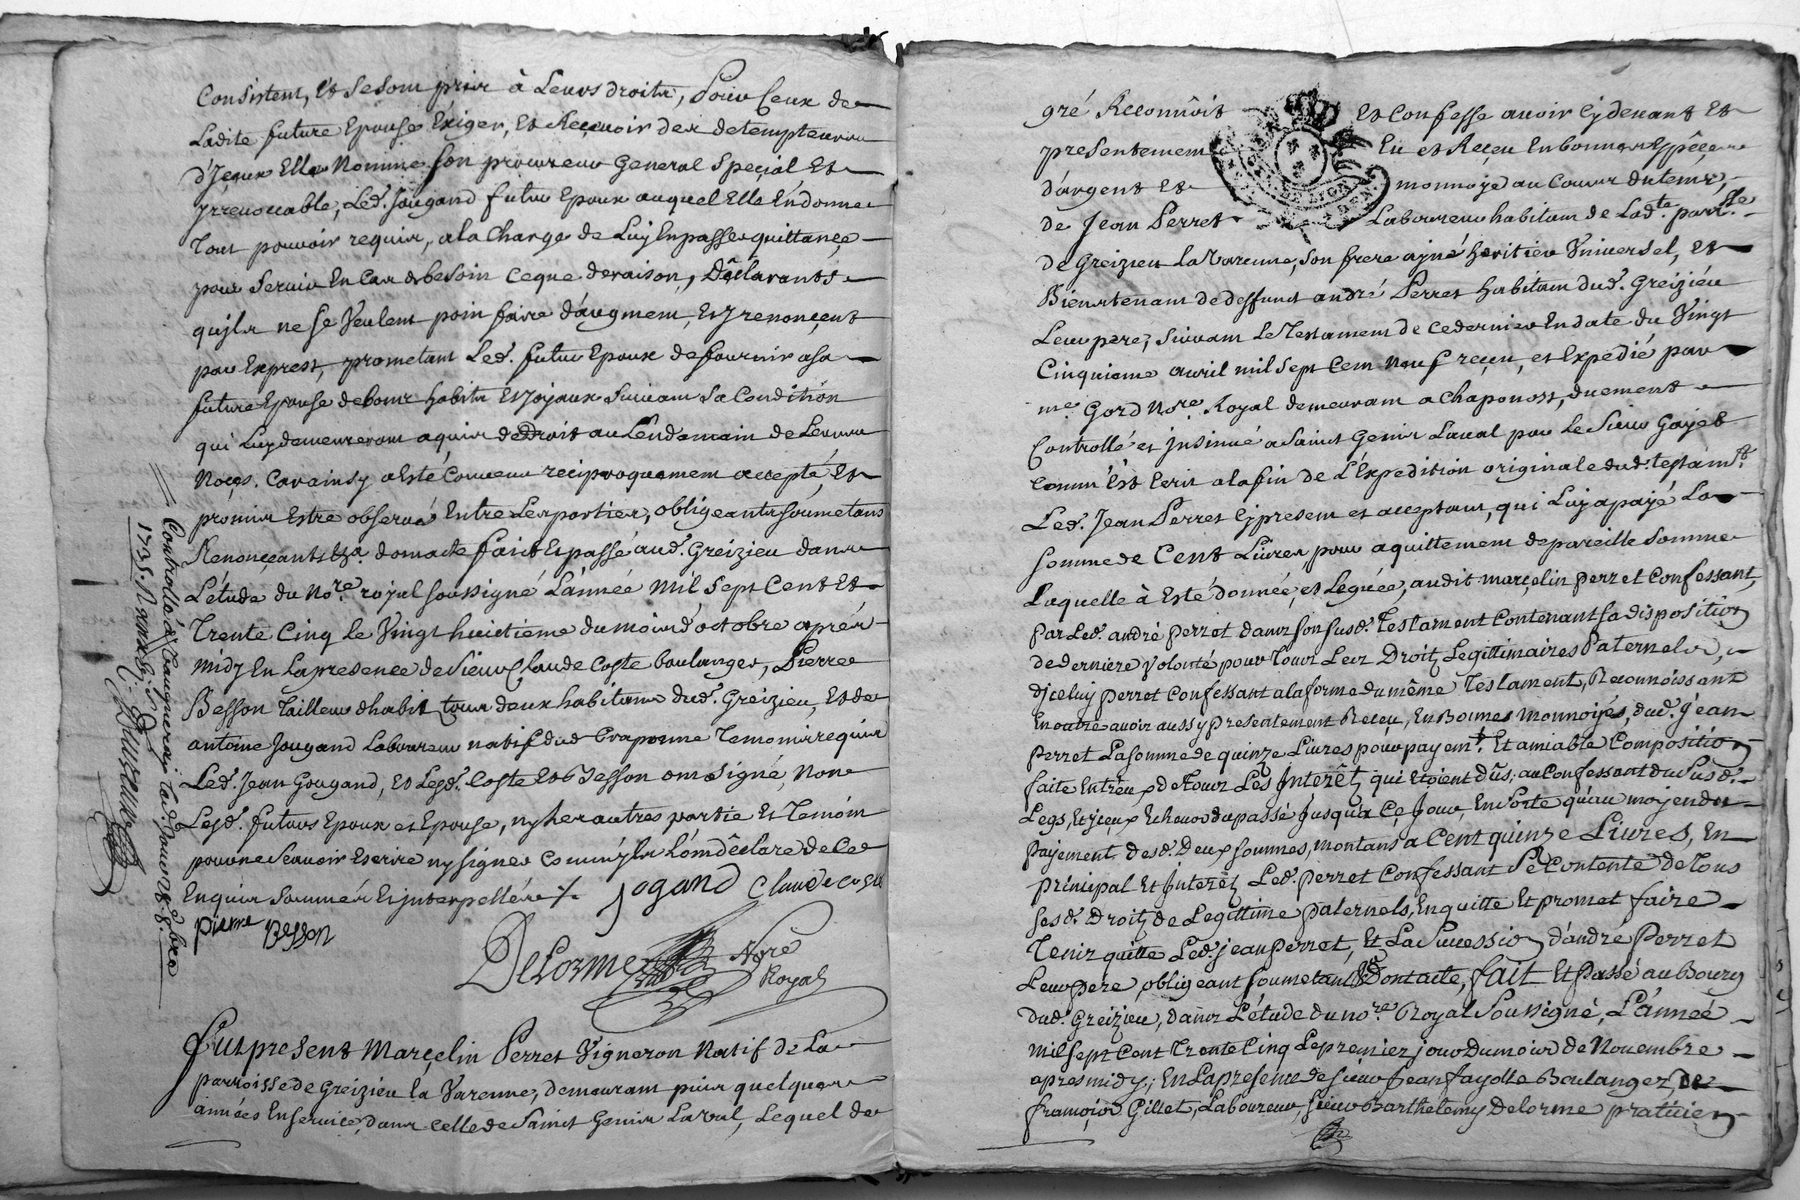 Consistent, Et Se Sont prix à Leurs droits, Pour Ceux de
Ladite future Epouse Exiger, Et Reçevoir des detempteurs
d'Jçeux Elle Nomme son procureur General Speçial, Et
Jrrevoccable, Led. Jougand futur Epoux auquel Elle En donne
tout pouvoir requis, a la Charge de Luy En passer quittançe
pour Servir En Cas de besoin Ceque de raison, Dêclarants
qu'jls ne Se Veulent poin faire d'augment, Et y renonçent
par Exprest, prometant Led. futur Epoux de fournir a sa
future Epouse de bons habits Et Joyaux Suivant Sa Condition
qui Luy demeureront aquis de Droit au Lendemain de Leurs
Noçes. Car ainsy a Esté Convenu reciproquement accepté, Et
promis Estre observé Entre Les parties, obligeants soumetans
Renonceants &a. dont acte fait Et passé aud. Greizieu dans
L'étude du Nore. royal soussigné L'année Mil Sept Cent Et
Trente Cinq le Vingt huictieme du mois d'octobre aprés
midy En La presence de Sieur Claude Coste boulanger, Pierre
Besson Tailleur d'habit tous deux habitans dud. Greizieu, Et de
antoine Jougand Laboureur natif dud Craponne Temoins requis
Led. Jean Gougand, Et Lesd. Coste Et Besson ont Signé, Non
Lesd. futurs Epoux et Epouse, ny les autres partie Et Temoin
pour ne Scavoir Escrire ny signer Comm'jls L'ont dêclaré de Ce
Enquis Sommés Et jnterpellés
jogand Claude coste
pierre Besson
Delorme Nore
Royal
Controllé à Vaugneray
1735.
Fut present Marçelin Perret Vigneron Natif de La
parroisse de Greizieu la Varenne, demeurant puis quelques
années En service dans celle de Saint Genis Laval, Lequel de
gré Reconnoit Et Confesse avoir Cy devant Et
presentement Eu et Reçeu En bonnes Espêçes
d'argent Et monnoye au Cours du tems,
de Jean Perret Laboureur habitant de Lad.te parr.sse
de Greizieu La Varenne, Son frere ayné heritier Universel, Et
Bientenant de deffunt andré Perret habitant dud. Greizieu
Leur pere, Suivant Le Testament de ce dernier En date du Vingt
Cinquieme avril mil Sept Cent Neuf reçeu, et Expedié par
me. Gord Nore. Royal demeurant a Chaponost, duement
Controllé et jnsinué a Saint Genis Laval par Le Sieur Gayet
Comm'Est Ecrit a la fin de L'Expedition originale dud. testamt.
Led. Jean Perret Cy present et acceptant, qui Luy a payé La
somme de Cent Livres pour aquittement de pareille Somme
Laquelle à Esté donnée, et Leguée, audit marçelin perret Confessant,
par Led. andré perret dans son susd. Testament Contenant sa disposition
de derniere Volonté pour Tous Les Droitz Legittimaires Paternels,
d'jceluy perret Confessant a la forme du même Testament, Reconnoissant
En outre avoir aussy presentement Reçeu, En Bonnes Monnoyes, dud. jean
perret La Somme de quinze Livres pour payemt. Et amiable Composition
faite Entr'eux de Tous Les Jnterêtz qui Etoient dûs, au Confessant du Susd.
Legs, Et jçeux Echeus du passé jusqu'à Ce Jour, En Sorte qu'au moyen du
payement desd. Deux Sommes, montans a Cent quinze Livres, En
prinçipal Et jnterêtz Led. perret Confessant Se Contente de Tous
sesd. Droitz de Legittime paternels, En quitte Et promet faire
Tenir quitte Led. jean Perret, Et La Successio d'andré Perret
Leur Pere, obligeant soumetant &a dont acte, fait Et Passé au Bourg
dud. Greizieu, dans L'étude du nore. Royal Soussigné, L'année
mil Sept Cent Trente Cinq Le premier jour Du mois de Novembre
apres midy; En La presence de sieur Jean fayolle Boulanger, De
françois Gillet, Laboureur, sieur Barthelemy Delorme pratiçien